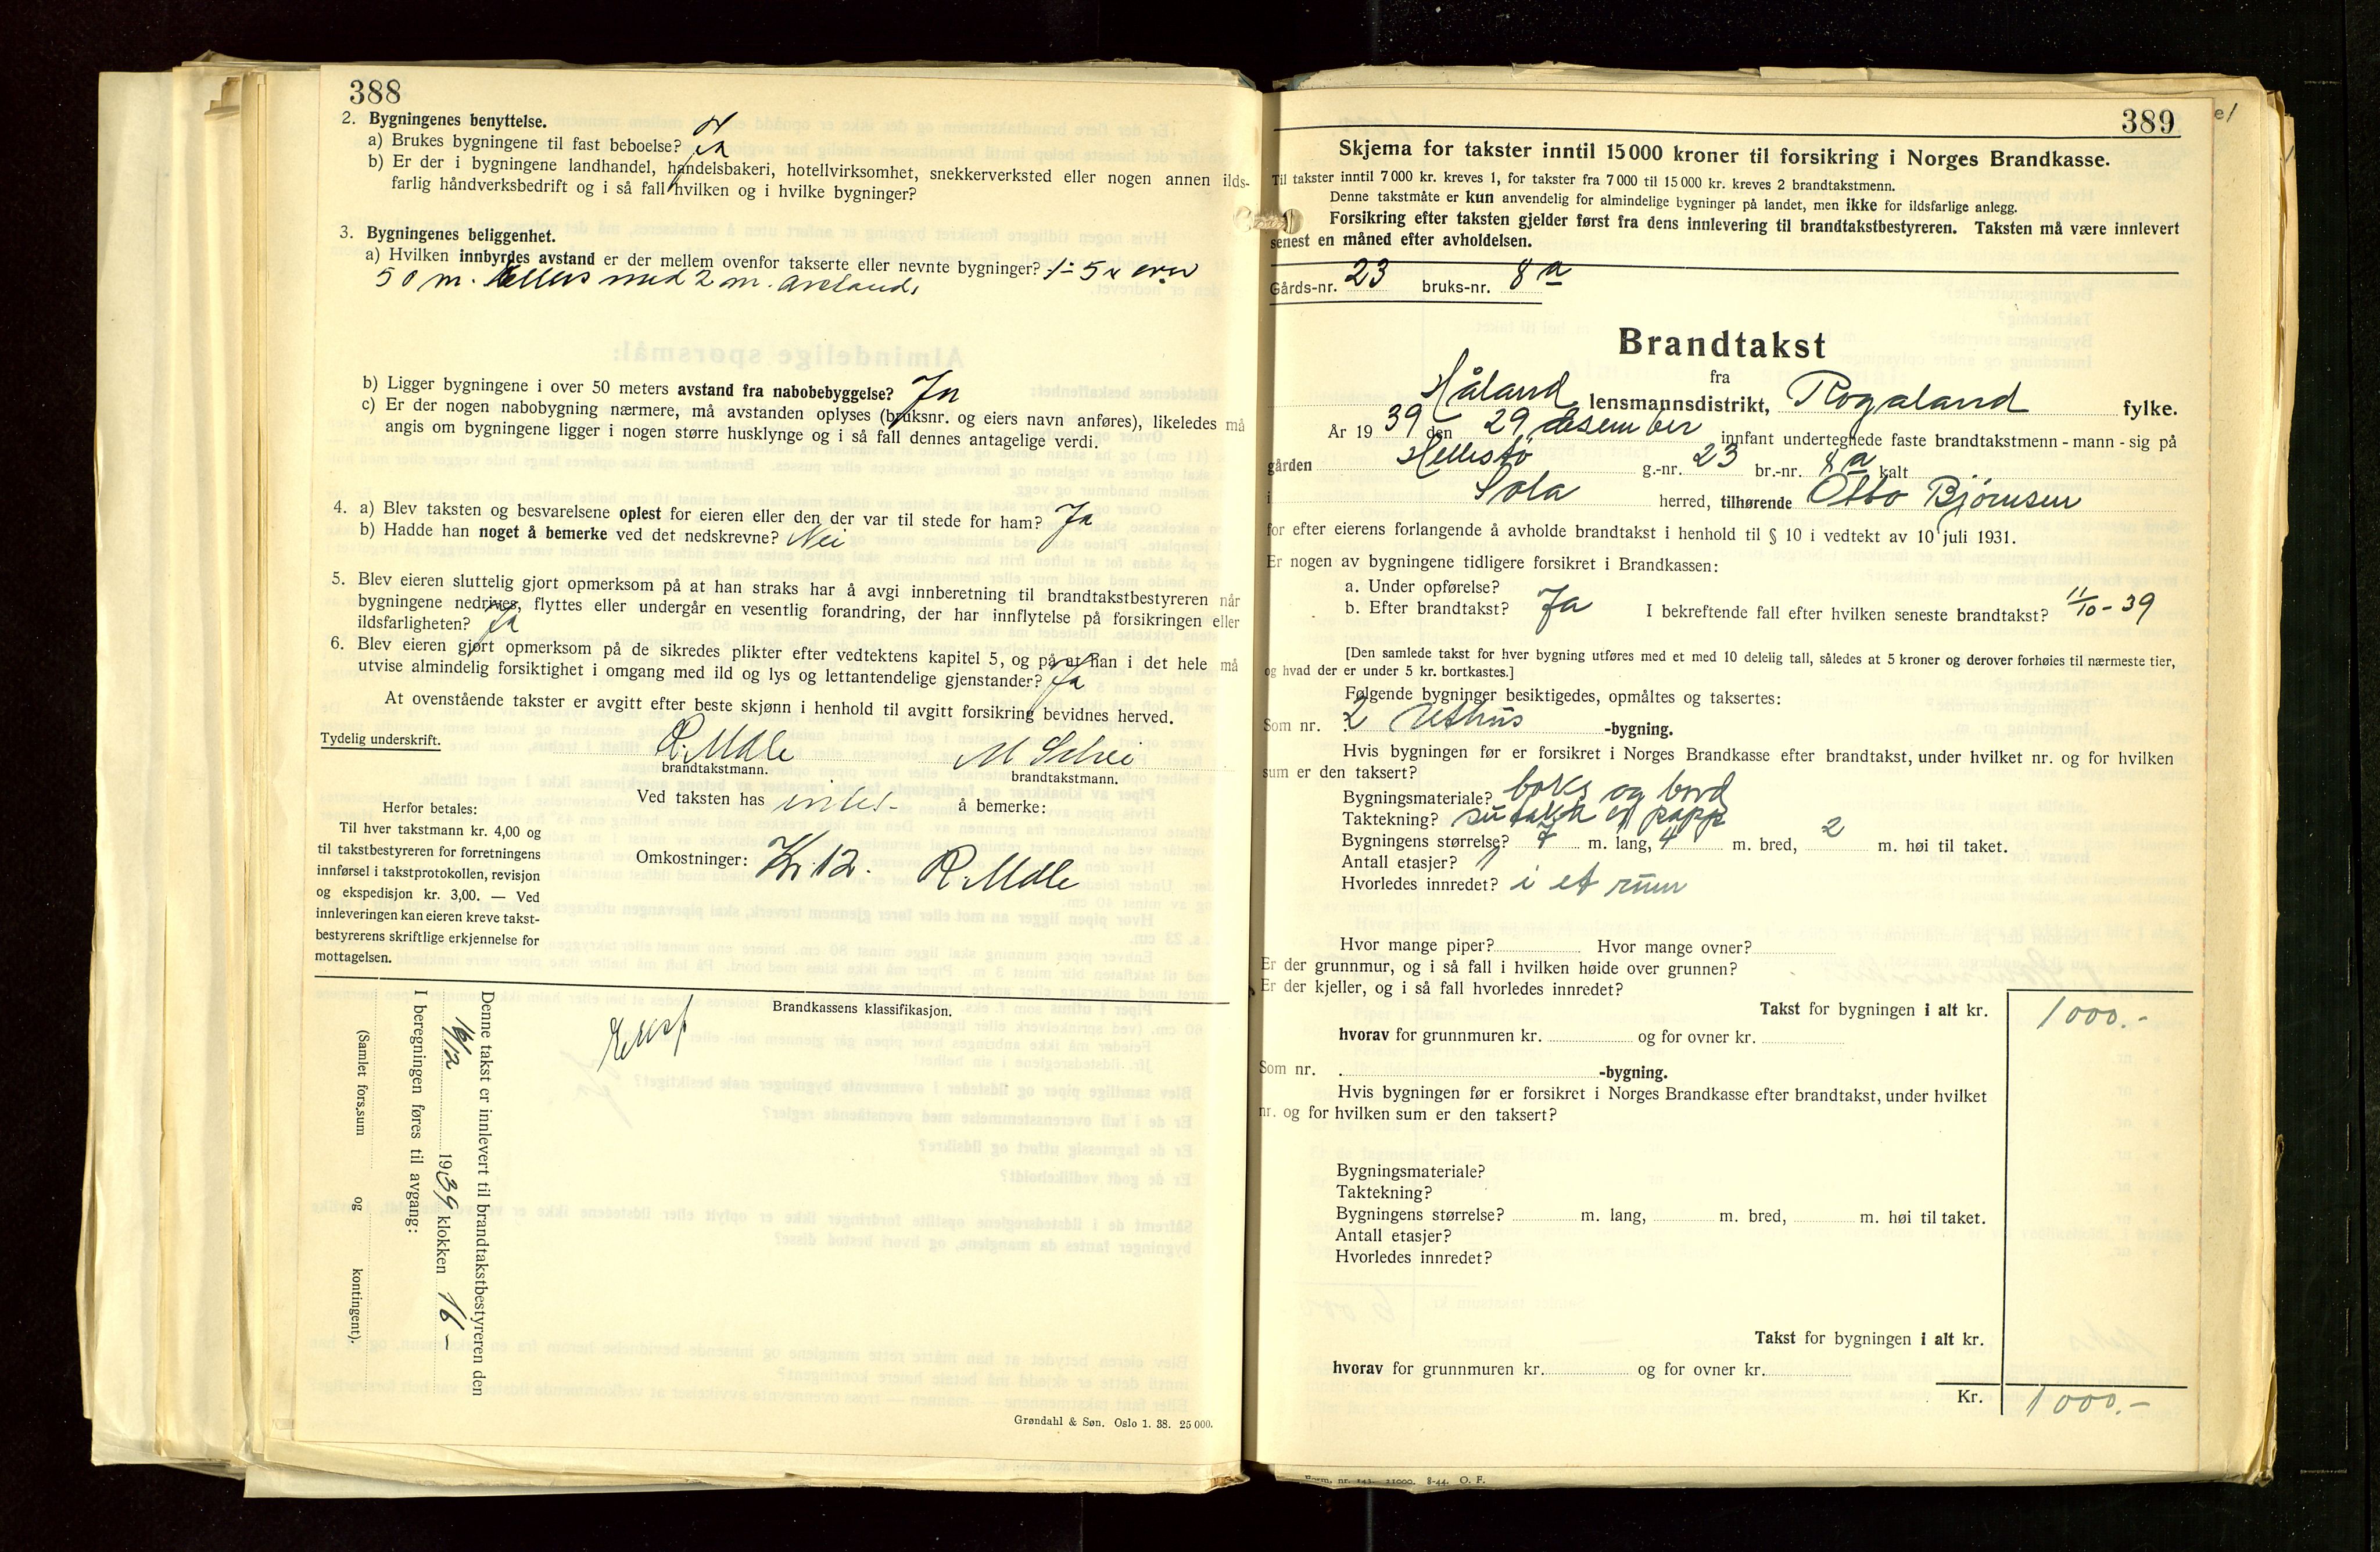 388
2. Bygningenes benyttelse.
a) Brukes bygningene til fast beboelse? Ja
b) Er der i bygningene landhandel, handelsbakeri, hotellvirksomhet, snekkerverksted eller nogen annen ilds-
farlig håndverksbedrift og i så fall hvilken og i hvilke bygninger?
3. Bygningenes beliggenhet.
a) Hvilken innbyrdes avstand er der mellem ovenfor takserte eller nevnte bygninger? 1 - 5 er over
50 m. ellers med 2 m. avstand
b) Ligger bygningene i over 50 meters avstand fra nabobebyggelse? Ja
c) Er der nogen nabobygning nærmere, må avstanden oplyses (bruksnr. og eiers navn anføres), likeledes må
angis om bygningene ligger i nogen større husklynge og i så fall dennes antagelige verdi.
4. a) Blev taksten og besvarelsene oplest for eieren eller den der var til stede for ham? Ja
b) Hadde han noget å bemerke ved det nedskrevne? Nei
5. Blev eieren sluttelig gjort opmerksom på at han straks har å avgi innberetning til brandtakstbestyreren når
bygningene nedrives, flyttes eller undergår en vesentlig forandring, der har innflytelse på forsikringen eller
ildsfarligheten? Ja
6. Blev eieren gjort opmerksom på de sikredes plikter efter vedtektens kapitel 5, og på at han i det hele må
utvise almindelig forsiktighet i omgang med ild og lys og lettantendelige gjenstander? Ja
At ovenstående takster er avgitt efter beste skjønn i henhold til avgitt forsikring bevidnes herved.
Tydelig underskrift. R. Melle M
brandtakstmann. brandtakstmann.
Ved taksten has intet å bemerke:
Herfor betales:
Til hver takstmann kr. 4,00 og
til takstbestyreren for forretningens
innførsel i takstprotokollen, revisjon
og ekspedisjon kr. 3,00. — Ved
innleveringen kan eieren kreve takst-
bestyrerens skriftlige erkjennelse for
mottagelsen.
Omkostninger: Kr. 12. R. Melle
Brandkassens klassifikasjon.
Denne takst er innlevert til brandtakstbestyreren den
16/12 1939 klokken 16 -
I beregningen føres til avgang:
(Samlet fors.sum og kontingent).
Grøndahl & Søn. Oslo 1. 38. 25 000.
389
Skjema for takster inntil 15 000 kroner til forsikring i Norges Brandkasse.
Til takster inntil 7 000 kr. kreves 1, for takster fra 7 000 til 15 000 kr. kreves 2 brandtakstmenn.
Denne takstmåte er kun anvendelig for almindelige bygninger på landet, men ikke for ildsfarlige anlegg.
Forsikring efter taksten gjelder først fra dens innlevering til brandtakstbestyreren. Taksten må være innlevert
senest en måned efter avholdelsen.
Gårds-nr. 23 bruks-nr. 8 a
Brandtakst
fra
Håland lensmannsdistrikt, Rogaland fylke.
År 1939 den 29 desember innfant undertegnede faste brandtakstmenn - mann - sig på
gården Hellestø g.-nr. 23 br.-nr. 8 a kalt
i Sola herred, tilhørende Otto Bjørnsen
for efter eierens forlangende å avholde brandtakst i henhold til § 10 i vedtekt av 10 juli 1931.
Er nogen av bygningene tidligere forsikret i Brandkassen:
a. Under opførelse?
b. Efter brandtakst? Ja I bekreftende fall efter hvilken seneste brandtakst? 11/10 - 39
[Den samlede takst for hver bygning utføres med et med 10 delelig tall, således at 5 kroner og derover forhøies til nærmeste tier,
og hvad der er under 5 kr. bortkastes.]
Følgende bygninger besiktigedes, opmåltes og taksertes:
Som nr. 2 Uthus -bygning.
Hvis bygningen før er forsikret i Norges Brandkasse efter brandtakst, under hvilket nr. og for hvilken
sum er den taksert?
Bygningsmateriale? og bord
Taktekning? sutakk og papp
Bygningens størrelse? 7 m. lang, 4 m. bred, 2 m. høi til taket.
Antall etasjer? 1
Hvorledes innredet? i et rum
Hvor mange piper? Hvor mange ovner?
Er der grunnmur, og i så fall i hvilken høide over grunnen?
Er der kjeller, og i så fall hvorledes innredet?
Takst for bygningen i alt kr. 1000.-
hvorav for grunnmuren kr. og for ovner kr.
Som nr. -bygning.
Hvis bygningen før er forsikret i Norges Brandkasse efter brandtakst, under hvilket
nr. og for hvilken sum er den taksert?
Bygningsmateriale?
Taktekning?
Bygningens størrelse? m. lang, m. bred, m. høi til taket.
Antall etasjer?
Hvorledes innredet?
Takst for bygningen i alt kr.
hvorav for grunnmuren kr. og for ovner kr.
Kr. 1000.-
8-44. O. F.